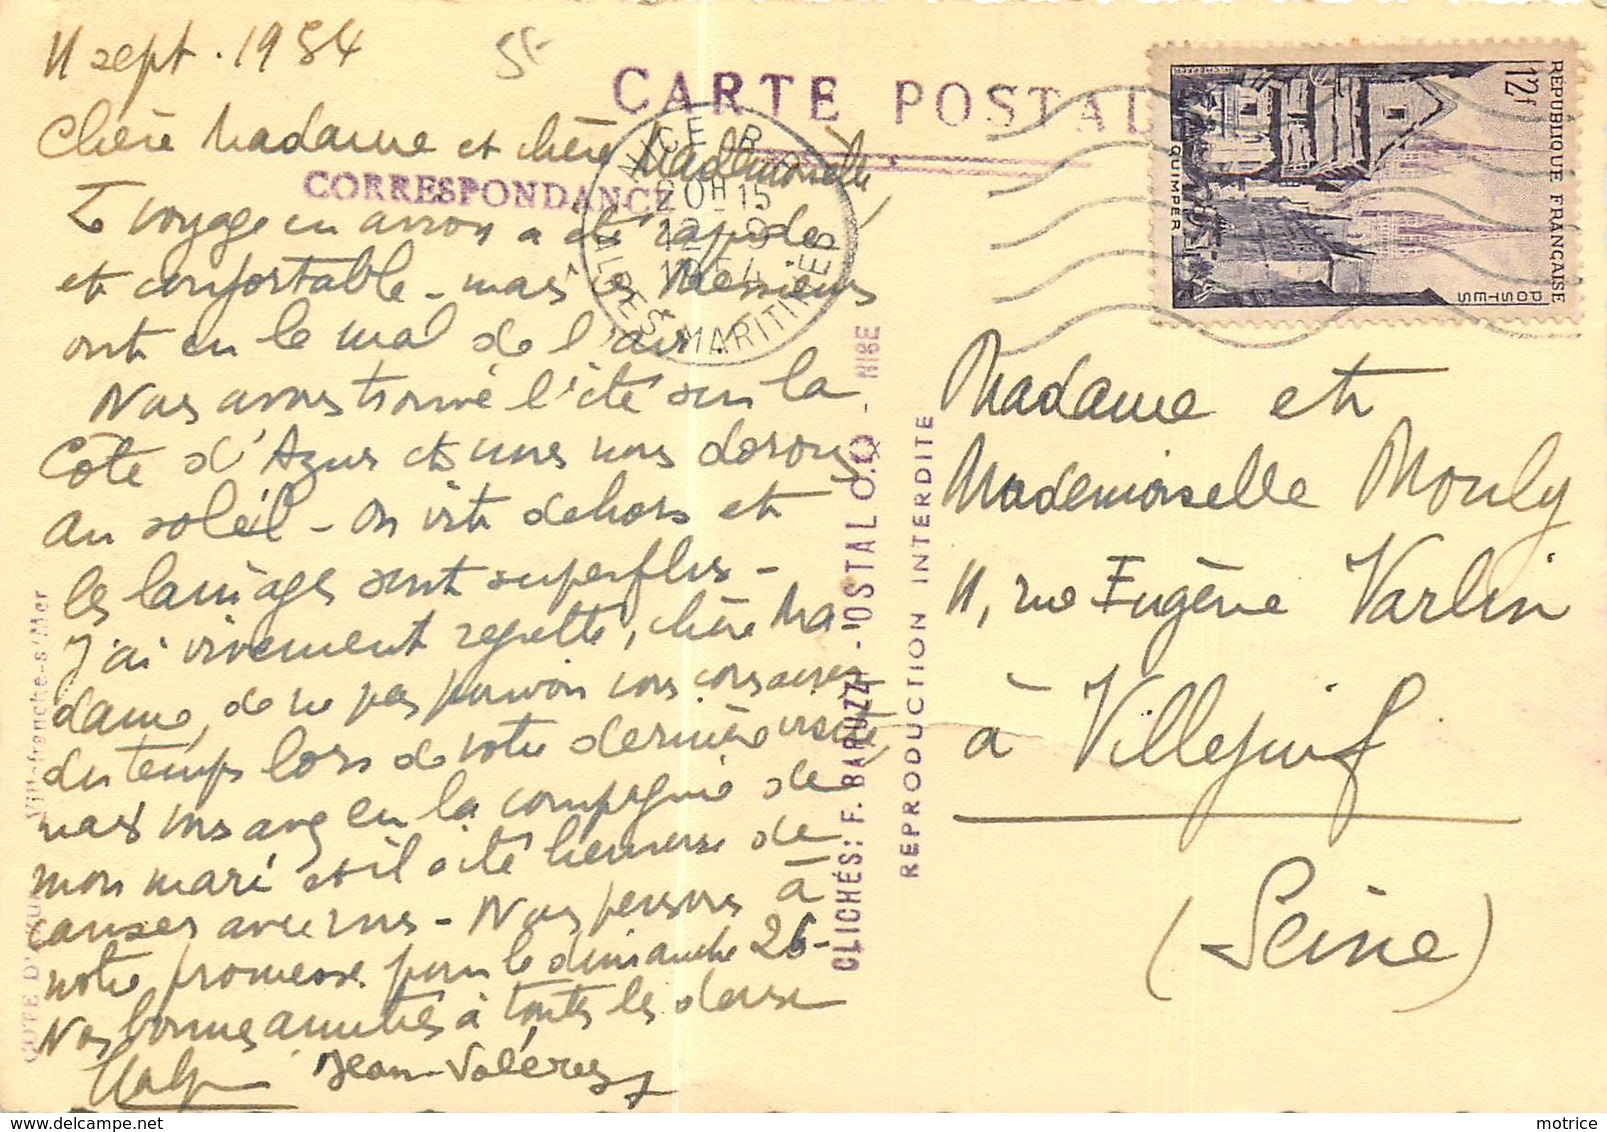 11 sept. 1954
5F
CARTE POSTALE
Chère Madame et chère Mademoiselle,
CORRESPONDANCE
NICE R.P
20H15
12-9
1954
ALPES MARITIMES
REPUBLIQUE FRANÇAISE
12f
QUIMPER
POSTES
Le voyage en avion a été rapide
et confortable - mais les Messieurs
ont eu le mal de l'air.
Nous avons trouvé l'été sur la
Côte d'Azur et nous nous dorons
au soleil - On vit dehors et
les lainages sont superflus -
J'ai vivement regretté, chère Ma
dame, de ne pas pouvoir vous consacrer
du temps lors de votre dernière visite,
mais vous avez eu la compagnie de
mon mari et il a été heureux de
causer avec vous - Nous pensons à
votre promesse pour le dimanche 26 -
Nos bonnes amitiés à toutes les deux
Jean-Valérey
Madame et
Mademoiselle Mouly
11, rue Eugène Varlin
à Villejuif
(Seine)
CLICHÉS: F. BARUZZI - POSTAL O.Q - NISE
REPRODUCTION INTERDITE
COTE D'AZUR
Villefranche-s/Mer
motrice